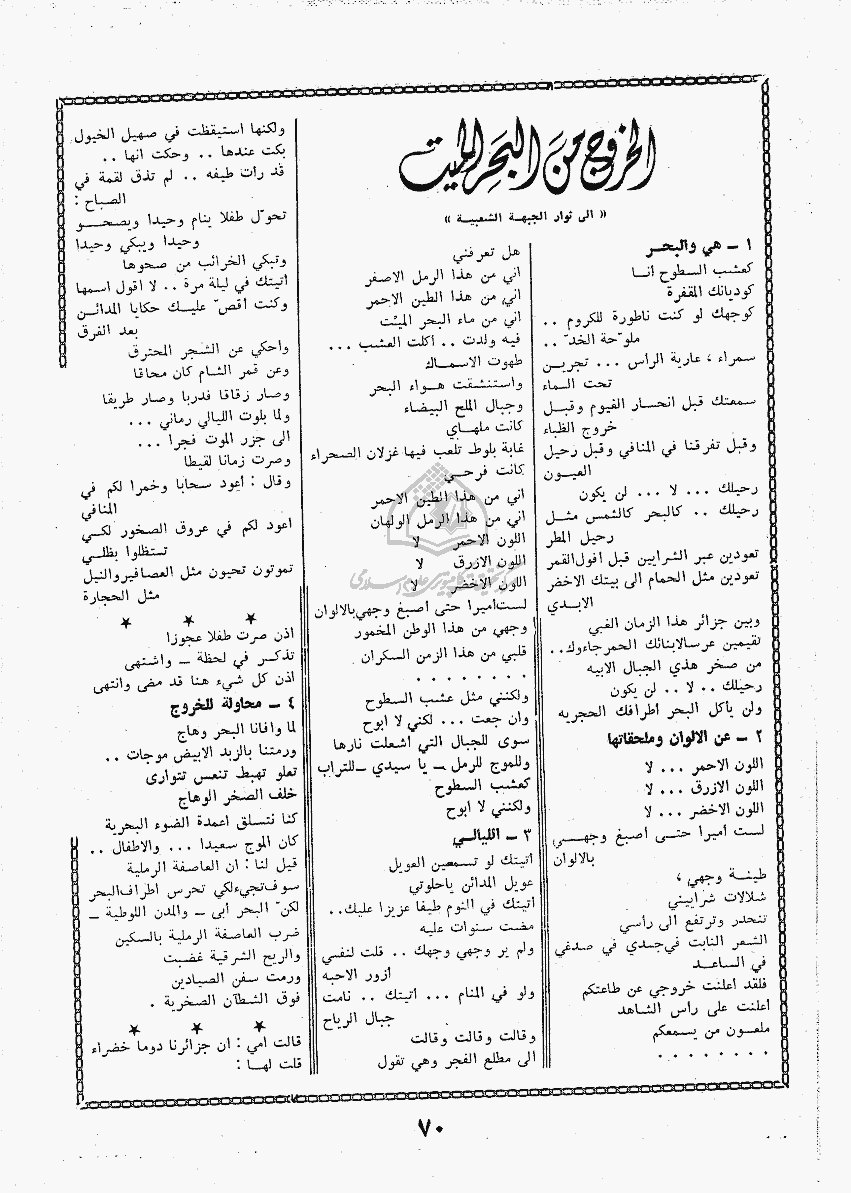 الخروج من البحر الميت
« الى ثوار الجبهة الشعبية »
١ ـ هي والبحر
كعشب السطوح أنا
كوديانك المقفرة
كوجهك لو كنت ناطورة للكروم ..
ملوّحة الخدّ ..
سمراء ، عارية الرأس ... تجرين
تحت السماء
سمعتك قبل انحسار الغيوم وقبل
خروج الظباء
وقبل تفرقنا في المنافي وقبل رحيل
العيون
رحيلك ... لا ... لن يكون
رحيلك .. كالبحر كالشمس مثل
رحيل المطر
تعودين عبر الشرايين قبل أفول القمر
تعودين مثل الحمام الى بيتك الاخضر
الابدي
وبين جزائر هذا الزمان الغبي
تقيمين عرسا لابنائك الحمر جاءوك..
من صخر هذي الجبال الابيه
رحيلك .. لا .. لن يكون
ولن يأكل البحر أطرافك الحجريه
٢ ـ عن الالوان وملحقاتها
اللون الاحمر ... لا
اللون الازرق ... لا
اللون الاخضر ... لا
لست أميرا حتى أصبغ وجهي
بالالوان
طينة وجهي ،
شلالات شراييني
تنحدر وترتفع الى رأسي
الشعر النابت في جسدي في صدغي
في الساعد
فلقد أعلنت خروجي عن طاعتكم
أعلنت على رأس الشاهد
ملعون من يسمعكم
. . . . . . . .
هل تعرفني
اني من هذا الرمل الاصفر
اني من هذا الطين الاحمر
اني من ماء البحر الميّت
فيه ولدت .. اكلت العشب ...
طهوت الاسماك
واستنشقت هواء البحر
وجبال الملح البيضاء
كانت ملهاي
غابة بلوط تلعب فيها غزلان الصحراء
كانت فرحي
اني من هذا الطين الاحمر
اني من هذا الرمل الولهان
اللون الاحمر لا
اللون الازرق لا
اللون الاخضر لا
لست أميرا حتى اصبغ وجهي بالالوان
وجهي من هذا الوطن المخمور
قلبي من هذا الزمن السكران
. . . . . . . .
ولكنني مثل عشب السطوح
وان جعت ... لكني لا ابوح
سوى للجبال التي أشعلت نارها
وللموج للرمل ـ يا سيدي ـ للتراب
كعشب السطوح
ولكنني لا ابوح
٣ ـ الليالي
أتيتك لو تسمعين العويل
عويل المدائن ياحلوتي
أتيتك في النوم طيفا عزيزا عليك..
مضت سنوات عليه
ولم ير وجهي وجهك .. قلت لنفسي
أزور الاحبه
ولو في المنام ... أتيتك .. نامت
جبال الرياح
وقالت وقالت وقالت
الى مطلع الفجر وهي تقول
ولكنها استيقظت في صهيل الخيول
بكت عندها .. وحكت انها ..
قد رأت طيفه .. لم تذق لقمة في
الصباح :
تحوّل طفلا ينام وحيدا ويصحو
وحيدا ويبكي وحيدا
وتبكي الخرائب من صحوها
أتيتك في ليلة مرة .. لا أقول اسمها
وكنت أقصّ عليك حكايا المدائن
بعد الغرق
واحكي عن الشجر المحترق
وعن قمر الشام كان محاقا
وصار زقاقا فدربا وصار طريقا
ولما بلوت الليالي رماني ...
الى جزر الموت فجرا ...
وصرت زمانا لقيطا
وقال : أعود سحابا وخمرا لكم في
المنافي
أعود لكم في عروق الصخور لكي
تستظلوا بظلي
تموتون تحيون مثل العصافير والنيل
مثل الحجارة
★ ★ ★
اذن صرت طفلا عجوزا
تذكر في لحظة ـ واشتهى
اذن كل شيء هنا قد مضى وانتهى
٤ ـ محاولة للخروج
لما وافانا البحر وهاج
ورمتنا بالزبد الابيض موجات ..
تعلو تهبط تنعس تتوارى
خلف الصخر الوهاج
كنا نتسلق أعمدة الضوء البحرية
كان الموج سعيدا ... والاطفال ..
قيل لنا : ان العاصفة الرملية
سوف تجيء لكي تحرس اطراف البحر
لكنّ البحر أبى ـ والمدن اللوطية ـ
ضرب العاصفة الرملية بالسكين
والريح الشرقية غضبت
ورمت سفن الصيادين
فوق الشطآن الصخرية .
★ ★ ★
قالت امي : ان جزائرنا دوما خضراء
قلت لها :
٧٠